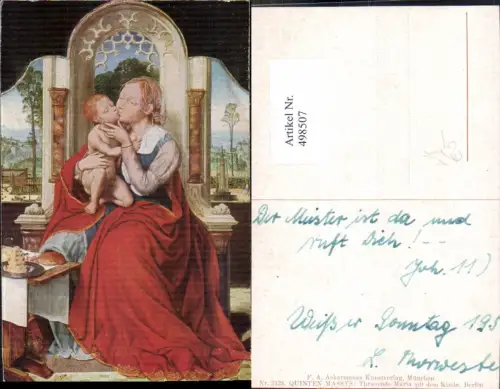 Artikel Nr.
498507
65
Der Meister ist da und
ruft Dich! --
Joh. 11)
Weißer Sonntag 195
F. A. Ackermanns Kunstverlag, München
Nr. QUINTEN MASSYS: Thronende Maria mit dem Kinde. Berlin